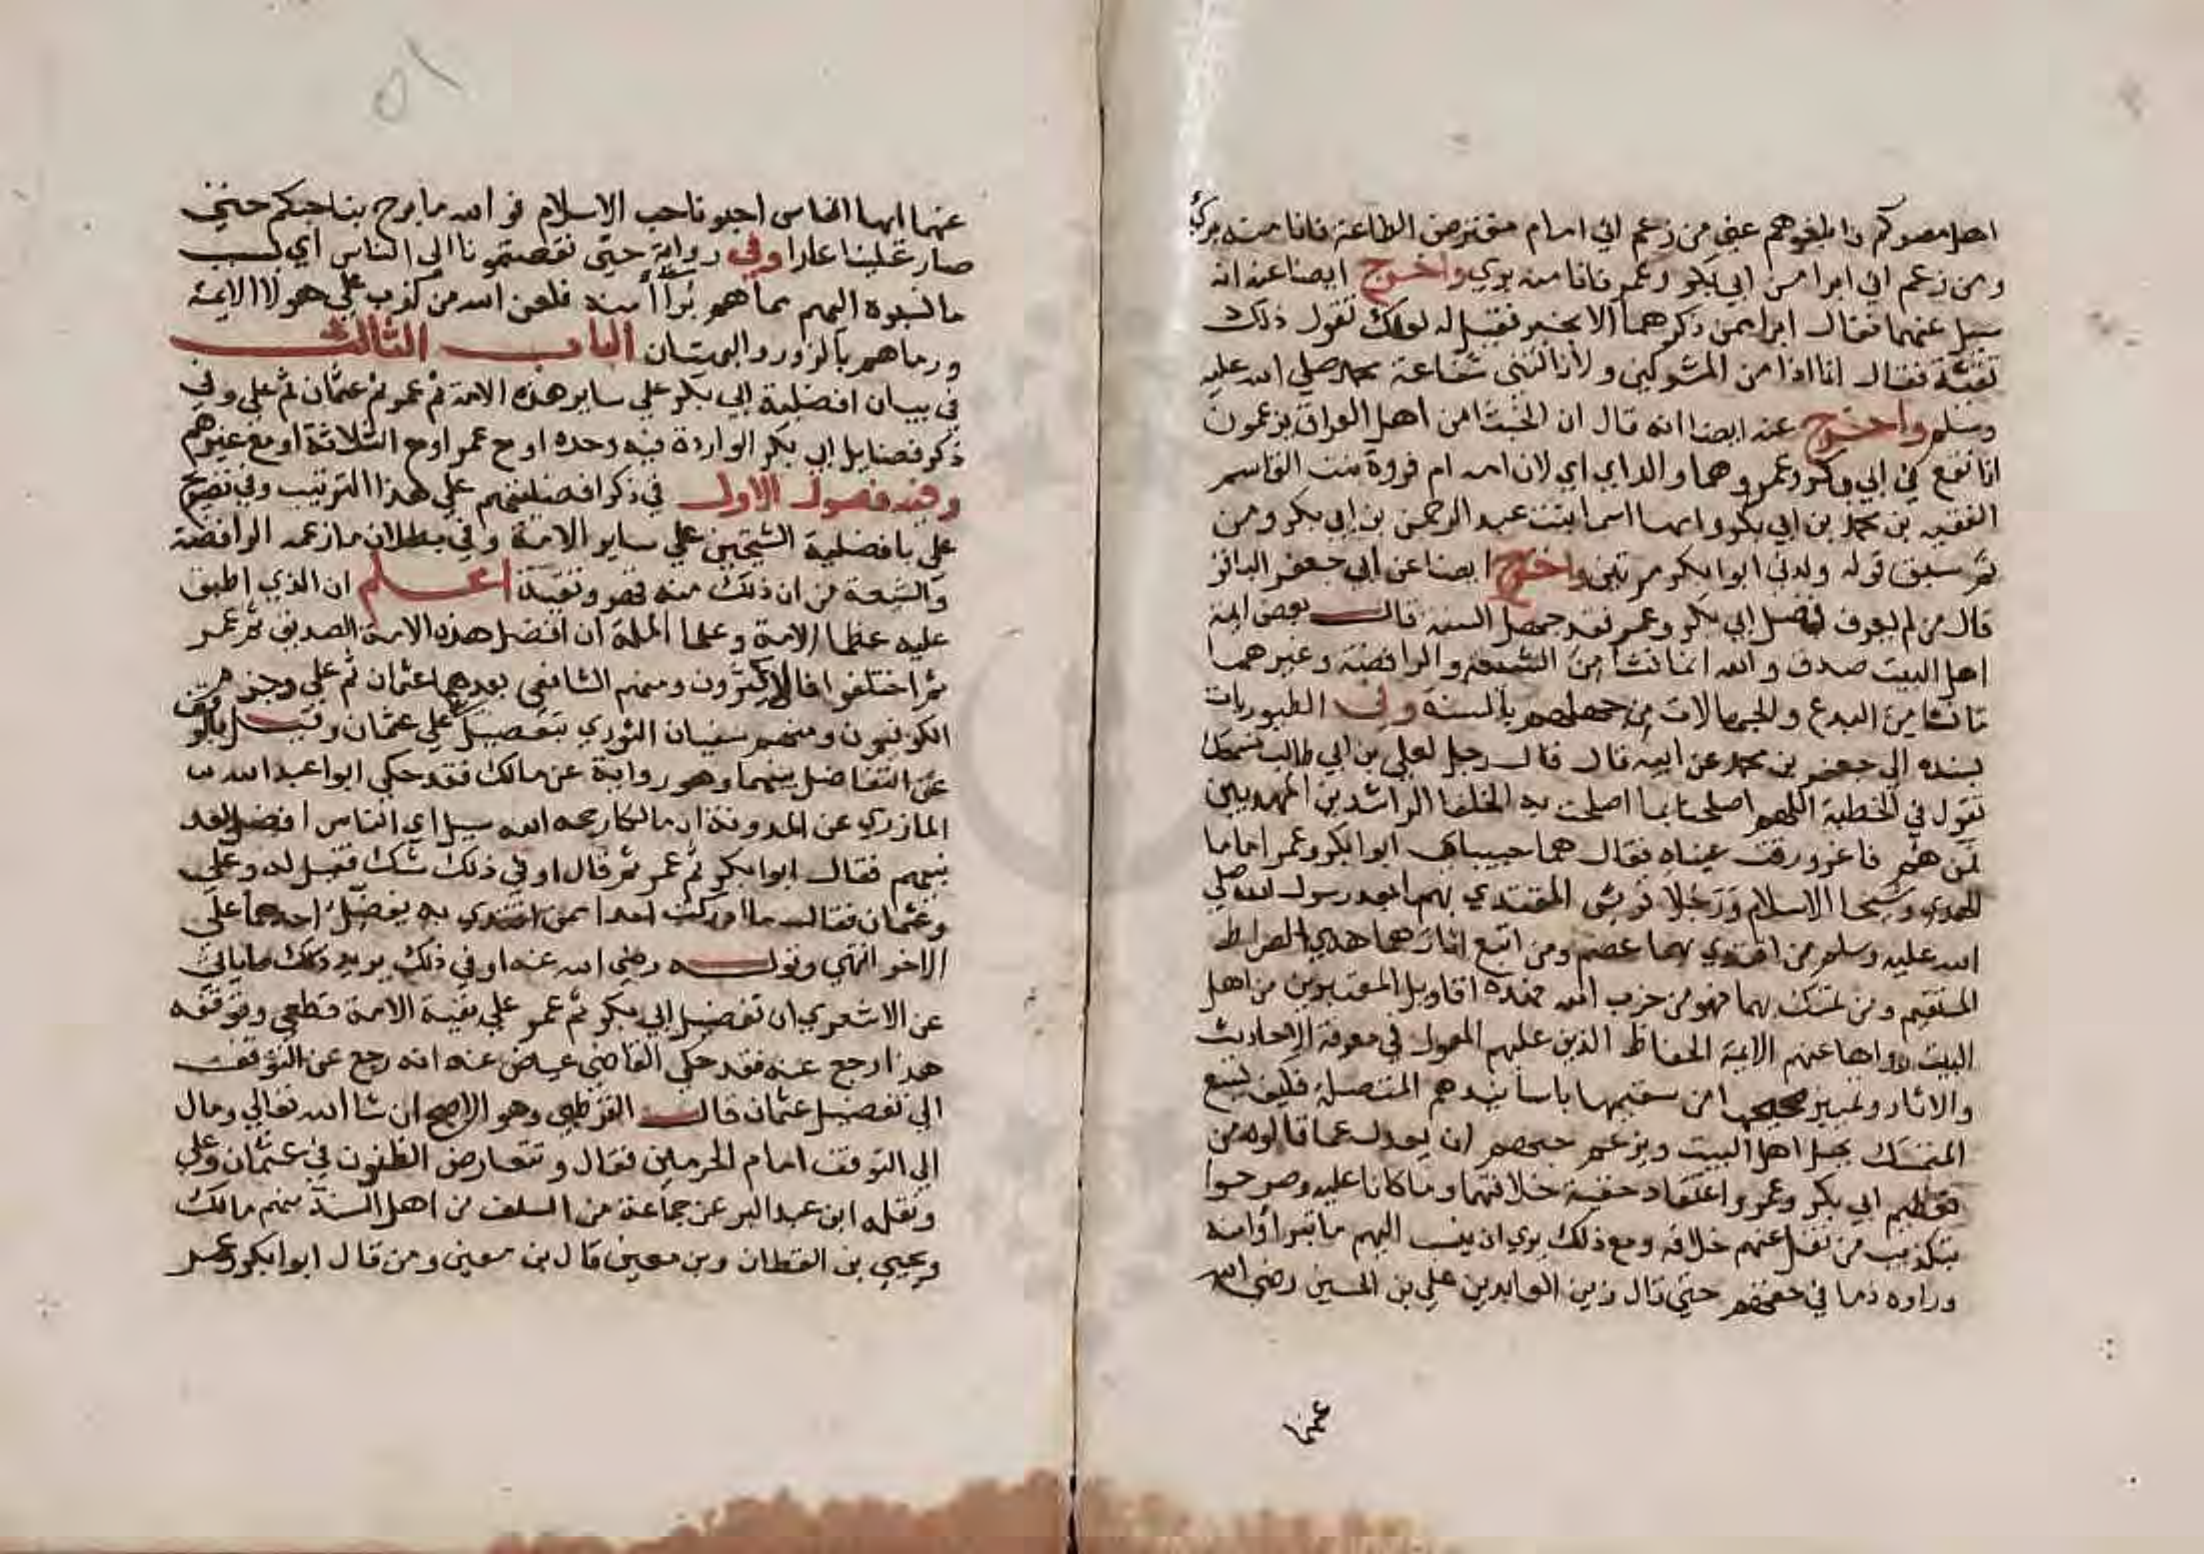 اهل مصركم وابلغوهم عني من زعم اني امام مفترض الطاعة فانا منه بري
ومن زعم اني ابرا من ابي بكر وعمر فانا منه بري واخرج ايضا عنه انه
سيل عنهما فقال ابرا ممن ذكرهما الا بخير فقيل له لعلك تقول ذلك
تقية فقال انا اذا من المشركين ولا نالتني شفاعة محمد صلى الله عليه
وسلم واخرج عنه ايضا انه قال ان الخبثا من اهل العراق يزعمون
انا نقع في ابي بكر وعمر وهما والداي اي لان امه ام فروة بنت القاسم
الفقيه بن محمد بن ابي بكر وامها اسما بنت عبد الرحمن بن ابي بكر ومن
ثم سبق قوله ولدني ابوا بكر مرتين واخرج ايضا عن ابي جعفر الباقر
قال من لم يعرف فضل ابي بكر وعمر فقد جهل السنة قال بعض ايمة
اهل البيت صدق والله انما نشا من الشيعة والرافضة وغيرهما
ما نشا من البدع والجهالات من جهلهم بالسنة وفي الطيوريات
بسنده الي جعفر بن محمد عن ابيه قال قال رجل لعلي بن ابي طالب نسمعك
تقول في الخطبة اللهم اصلحنا بما اصلحت به الخلفا الراشدين المهديين
فمن هم فاغرورقت عيناه فقال هما حبيباي ابوا بكر وعمر اماما
الهدي وشيخا الاسلام ورجلا قريش المقتدي بهما بعد رسول الله صلي
الله عليه وسلم من اقتدي بهما عصم ومن اتبع اثارهما هدي الصراط
المستقيم ومن تمسك بهما فهو من حزب الله فهذه اقاويل المعتبرين من اهل
البيت رواها عنهم الايمة الحفاظ الذين عليهم المعول في معرفة الاحاديث
والاثار وتمييز صحيحها من سقيمها باسانيدهم المتصلة فكيف يسع
المتمسك بحبل اهل البيت ويزعم حبهم ان يعدل عما قالوه من
تعظيم ابي بكر وعمر واعتقاد حقية خلافتهما وما كانا عليه وصرحوا
بتكذيب من نقل عنهم خلافه ومع ذلك يري ان ينسب اليهم ما تبراوا منه
وراوه ذما في حقهم حتي قال زين العابدين علي بن الحسين رضي الله
عنهما
٥١
عنهما ايها الناس احبونا حب الاسلام فوالله ما برح بنا حبكم حتي
صار علينا عارا وفي رواية حتي نقصتمونا الي الناس اي بسبب
ما نسبوه اليهم مما هم براا منه فلعن الله من كذب علي هولا الايمة
ورماهم بالزور والبهتان الباب الثالث
في بيان افضلية ابي بكر علي ساير هذه الامة ثم عمر ثم عثمان ثم علي وفي
ذكر فضايل ابي بكر الواردة فيه وحده او مع عمر او مع الثلاثة او مع غيرهم
وفيه فصول الاول في ذكر افضليتهم علي هذا الترتيب وفي تصريح
علي بافضلية الشيخين علي ساير الامة وفي بطلان ما زعمه الرافضة
والشيعة من ان ذلك منه قهر وتقية اعلم ان الذي اطبق
عليه عظما الامة وعلما الملة ان افضل هذه الامة الصديق ثم عمر
ثم اختلفوا فالاكثرون ومنهم الشافعي بعدهما عثمان ثم علي وجزم
الكوفيون ومنهم سفيان الثوري بتفضيل علي علي عثمان وقيل بالوقف
عن التفاضل بينهما وهو رواية عن مالك فقد حكي ابوا عبد الله
المازري عن المدونة ان مالكا رحمه الله سيل اي الناس افضل بعد
نبيهم فقال ابوا بكر ثم عمر ثم قال اوفي ذلك شك فقيل له وعلي
وعثمان فقال ما ادركت احدا ممن اقتدي به يفضل احدهما علي
الاخر انتهي وقوله رضي الله عنه اوفي ذلك يريد ذلك ما ياتي
عن الاشعري ان تفضيل ابي بكر ثم عمر علي بقية الامة قطعي وتوقفه
هذا رجع عنه فقد حكي القاضي عياض عنه انه رجع عن التوقف
الي تفضيل عثمان قال القرطبي وهو الاصح ان شا الله تعالي ومال
الي التوقف امام الحرمين فقال وتتعارض الظنون في عثمان وعلي
ونقله ابن عبد البر عن جماعة من السلف من اهل السنة منهم مالك
ويحيي بن القطان وبن معين قال بن معين ومن قال ابوا بكر وعمر